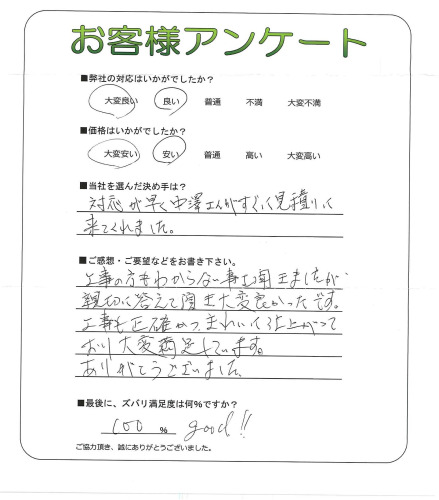 お客様アンケート
■弊社の対応はいかがでしたか？
大変良い 良い 普通 不満 大変不満
■価格はいかがでしたか？
大変安い 安い 普通 高い 大変高い
■当社を選んだ決め手は？
対応が早く中澤さんがすぐに見積りに
来てくれました。
■ご感想・ご要望などをお書き下さい。
工事の方もわからない事を聞きましたが
親切に答えて頂き大変良かったです。
工事も正確かつきれいに仕上がって
おり大変満足しています。
ありがとうございました。
■最後に、ズバリ満足度は何%ですか？
100 % good!!
ご協力頂き、誠にありがとうございました。